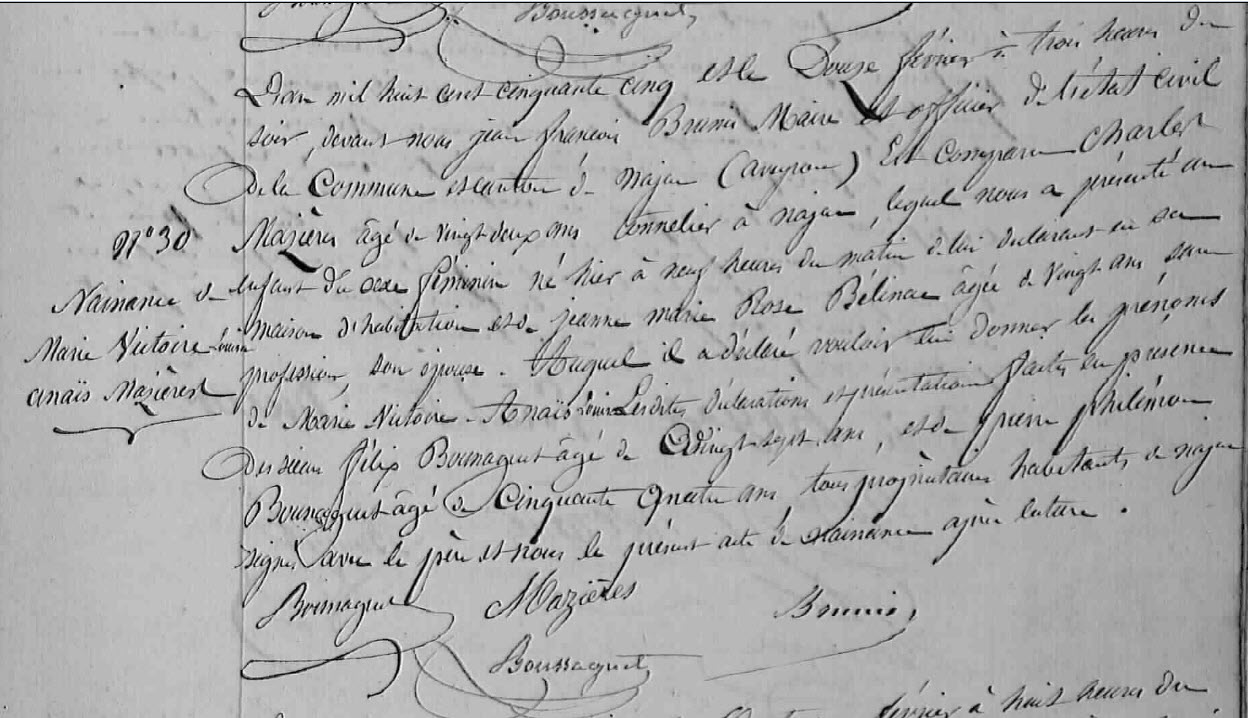 Boussaguet
L'an mil huit cent cinquante cinq et le Douze février à trois heures du
soir, devant nous jean francois Brunis Maire et officier de l'état civil
De la Commune et canton de najac (aveyron) Est comparu Charles
N° 30
Mazières âgé de vingt deux ans tonnelier à najac, lequel nous a présenté un
Naissance de
enfant du sexe féminin né hier à neuf heures du matin de lui déclarant en sa
maison d'habitation et de jeanne marie Rose Bélinac âgée de vingt ans sans
Marie Victoire Louise
profession, son épouse. Auquel il a déclaré vouloir lui donner les prénoms
anaïs Mazières
de Marie Victoire Anaïs Louise Lesdites déclarations et présentation faites en présence
Des sieurs félix Boussaguet âgé de Vingt sept ans, et de pierre philémon
Boussaguet âgé de Cinquante Quatre ans tous propriétaires habitants de najac
signés avec le père et nous le présent acte de naissance après lecture.
Boussaguet Mazières Brunis
Boussaguet
février à huit heures du